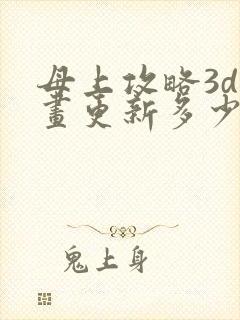 母上攻略3d
畫更新多少
鬼上身